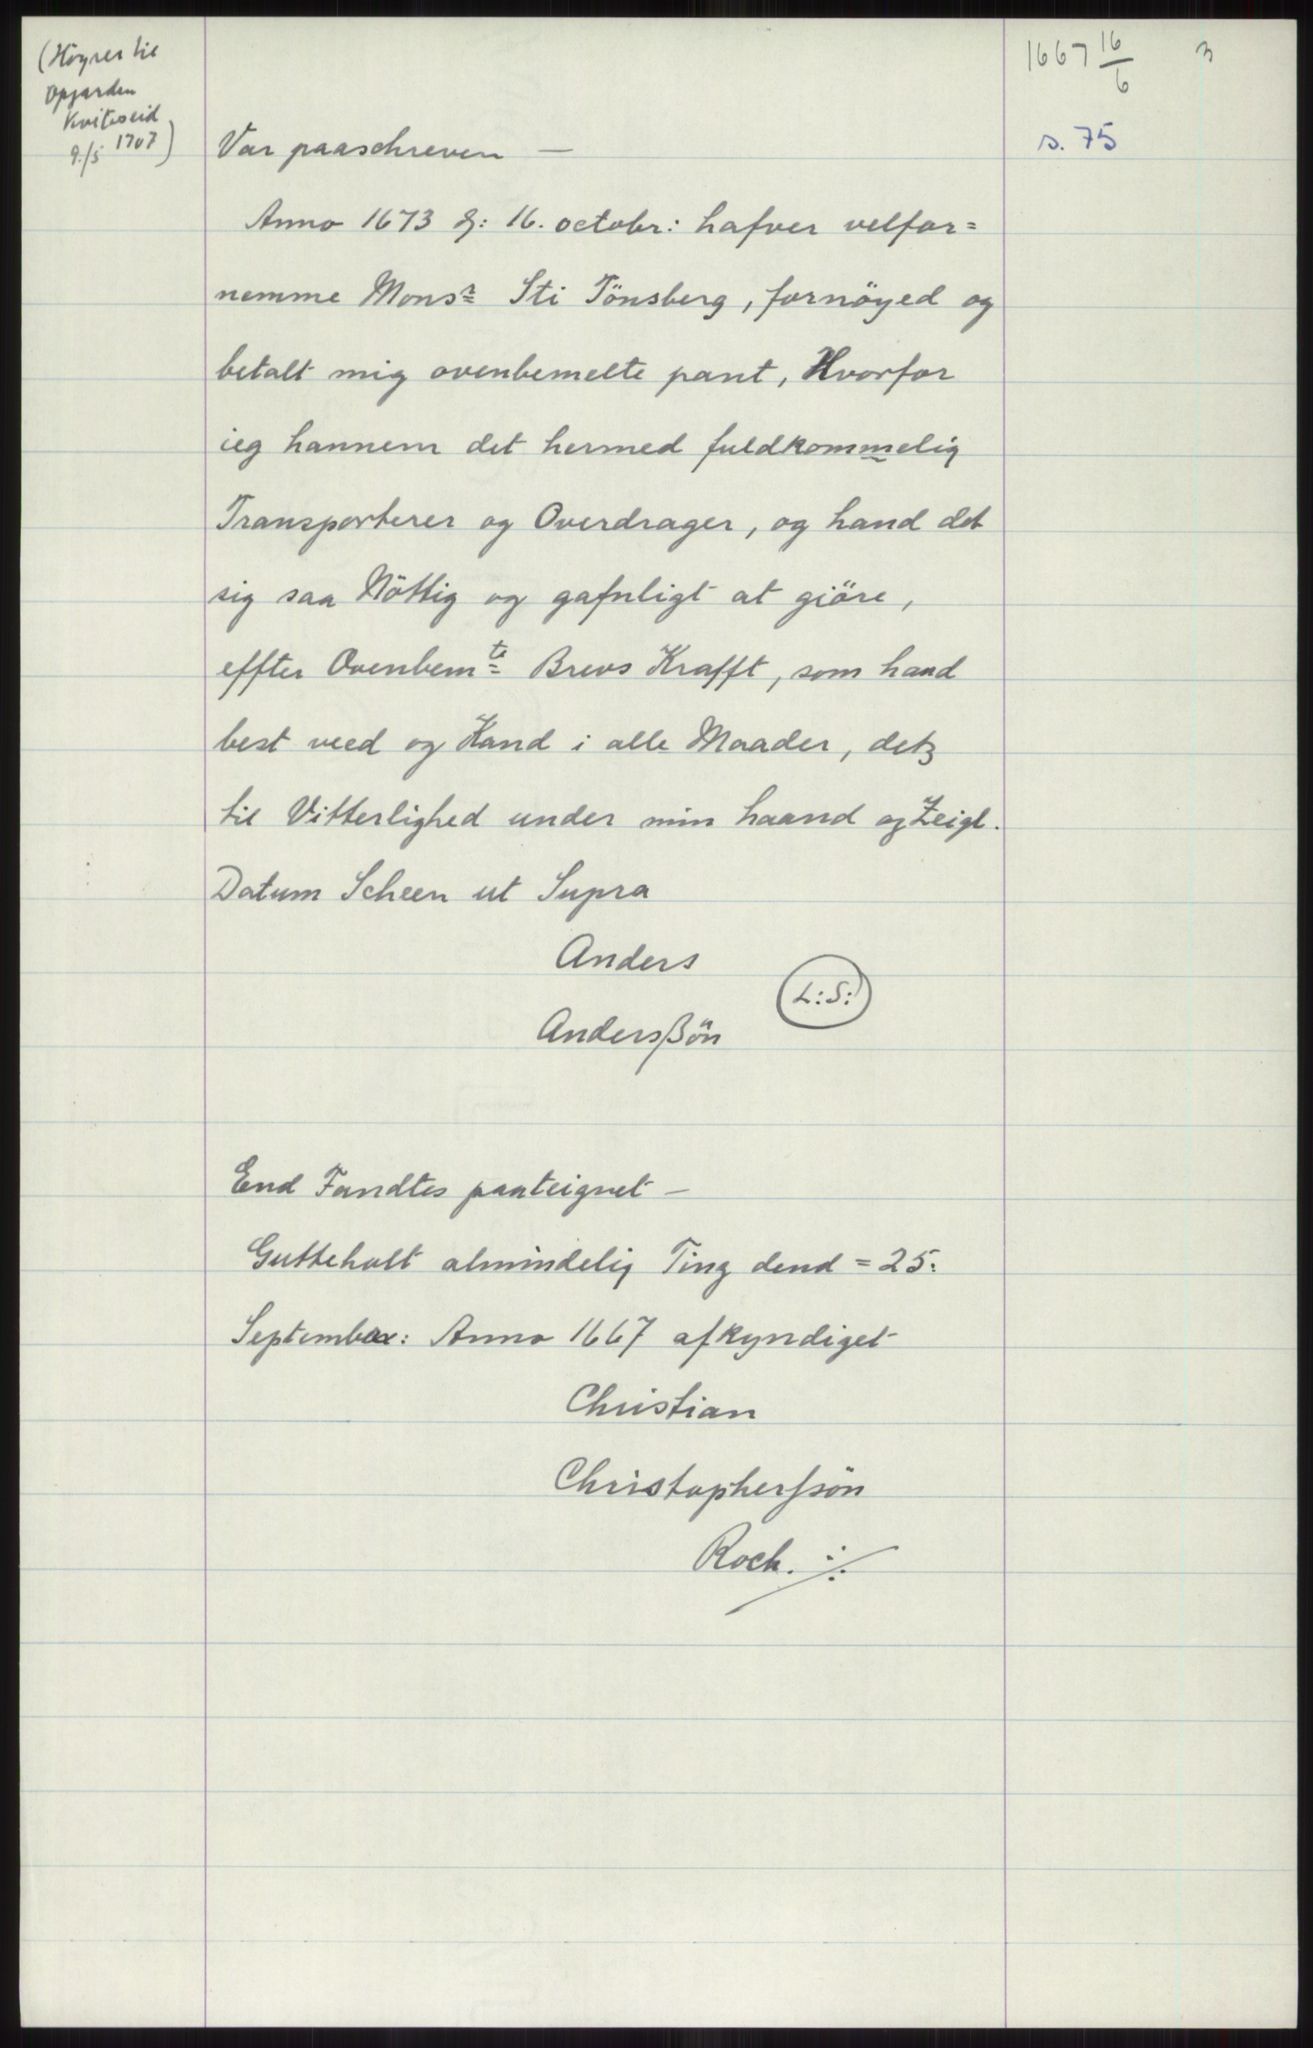 (Høyrer til
Opjarden
Kviteseid
9./5 1707)
1667 16/6
3
s. 75
Var paaschreven —
Anno 1673 d: 16. octobr: hafver velfor=
nemme Monsr Sti Tönsberg, fornöyed og
betalt mig ovenbemelte pant, Hvorfor
ieg hannem det hermed fuldkommelig
Transporterer og Overdrager, og hand det
sig saa Nöttig og gafnligt at giöre,
effter Ovenbemte Brevs Krafft, som hand
best veed og Kand i alle Maader, detz
til Vitterlighed under min haand og Zeigl.
Datum Scheen ut Supra
Anders
L:S:
Andersßön
End Fandtes paateignet —
Gutteholt almindelig Ting dend = 25:
September: Anno 1667 afkyndiget
Christian
Christopherssön
Roch. ./.